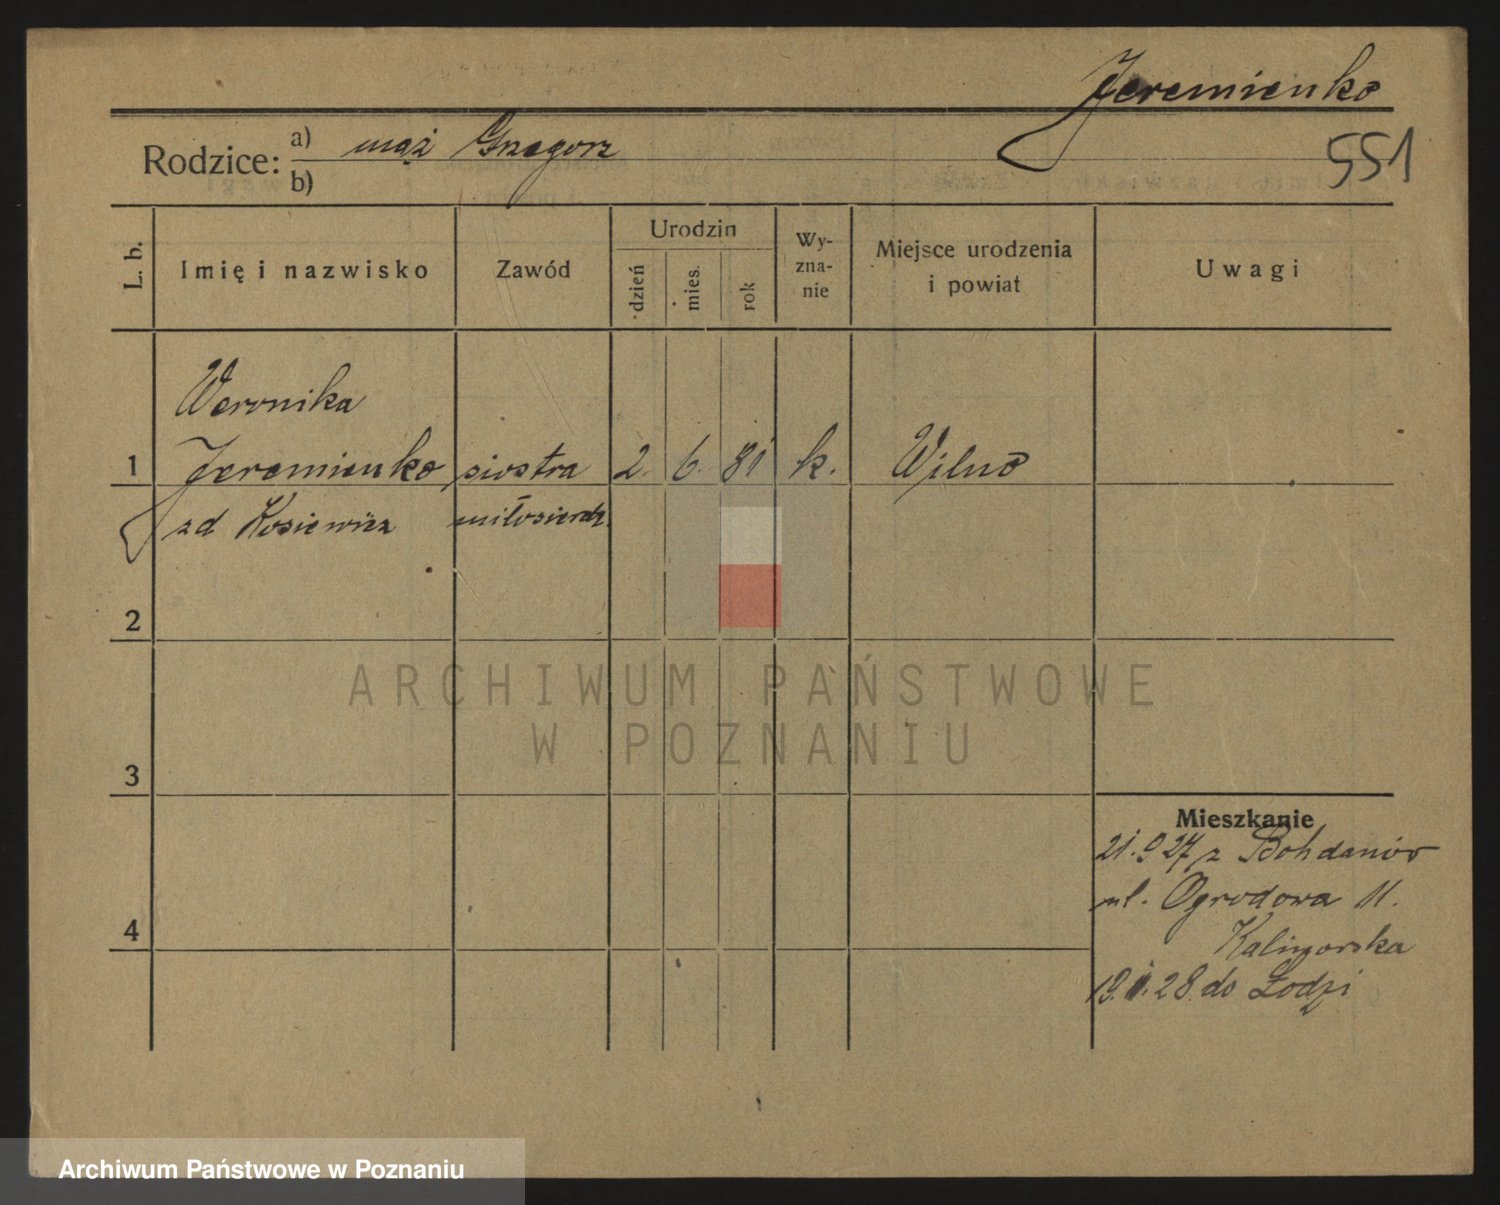 Jeremienko
551
Rodzice: a) mąż Grzegorz
b)
L. b.
Imię i nazwisko
Zawód
Urodzin
dzień
mies.
rok
Wy-
zna-
nie
Miejsce urodzenia
i powiat
Uwagi
Weronika
1 Jeremienko siostra 2. 6. 81 k. Wilno
zd Kosiewicz miłosierdz.
2
3
4
Mieszkanie
21.9 27 z Bohdanów
ul. Ogrodowa 11.
19. 28 do Łodzi
ARCHIWUM PAŃSTWOWE
W POZNANIU
Archiwum Państwowe w Poznaniu